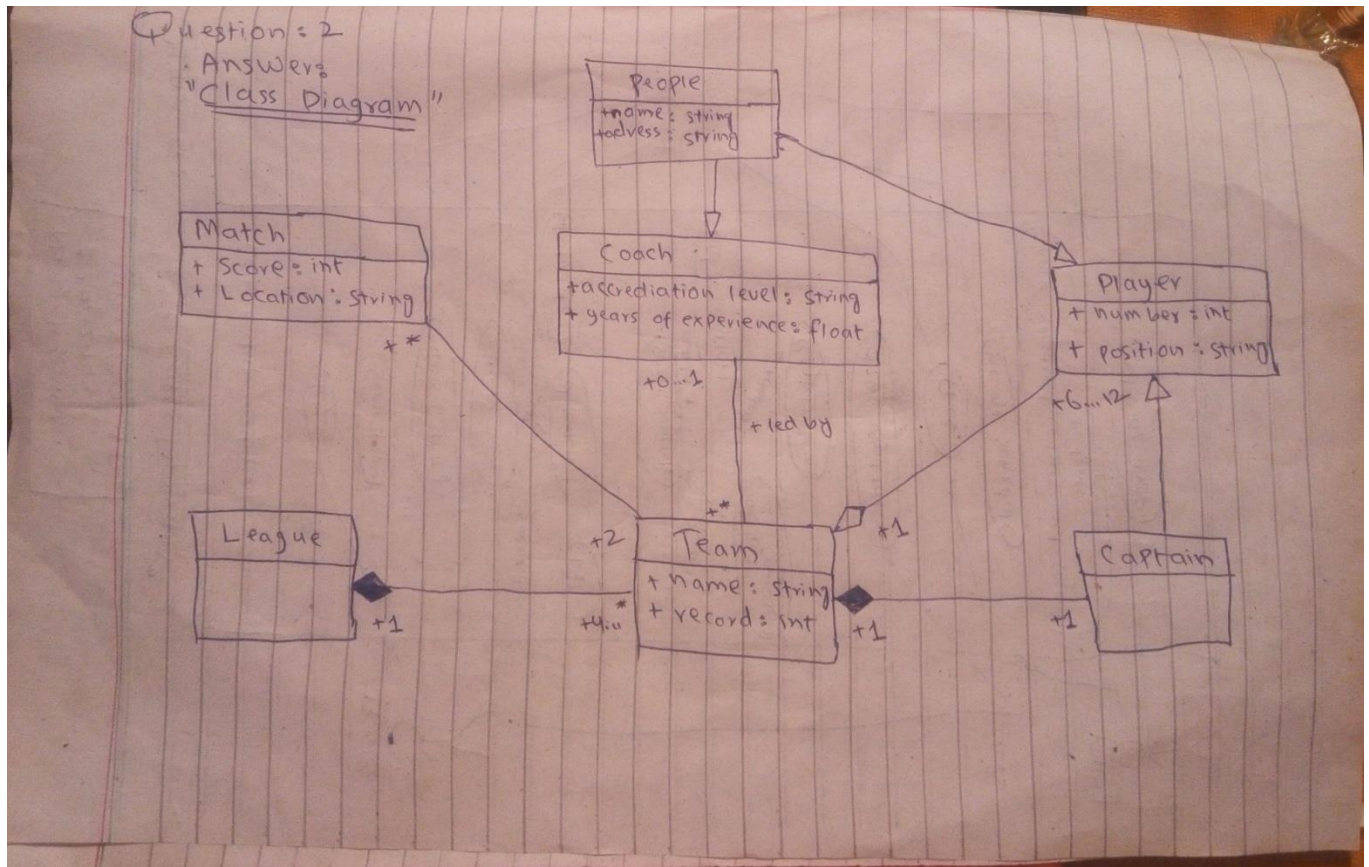 Question: 2
Answer:
"Class Diagram"
People
+name: string
+adress: string
Match
+ Score: int
+ Location: string
+ *
Coach
+accrediation level: string
+ years of experience: float
+0...1
+ led by
+*
Player
+ number: int
+ position: string
+6...12
League
+1
+2
+4..*
Team
+ name: string
+ record: int
+1
+1
+1
Captain